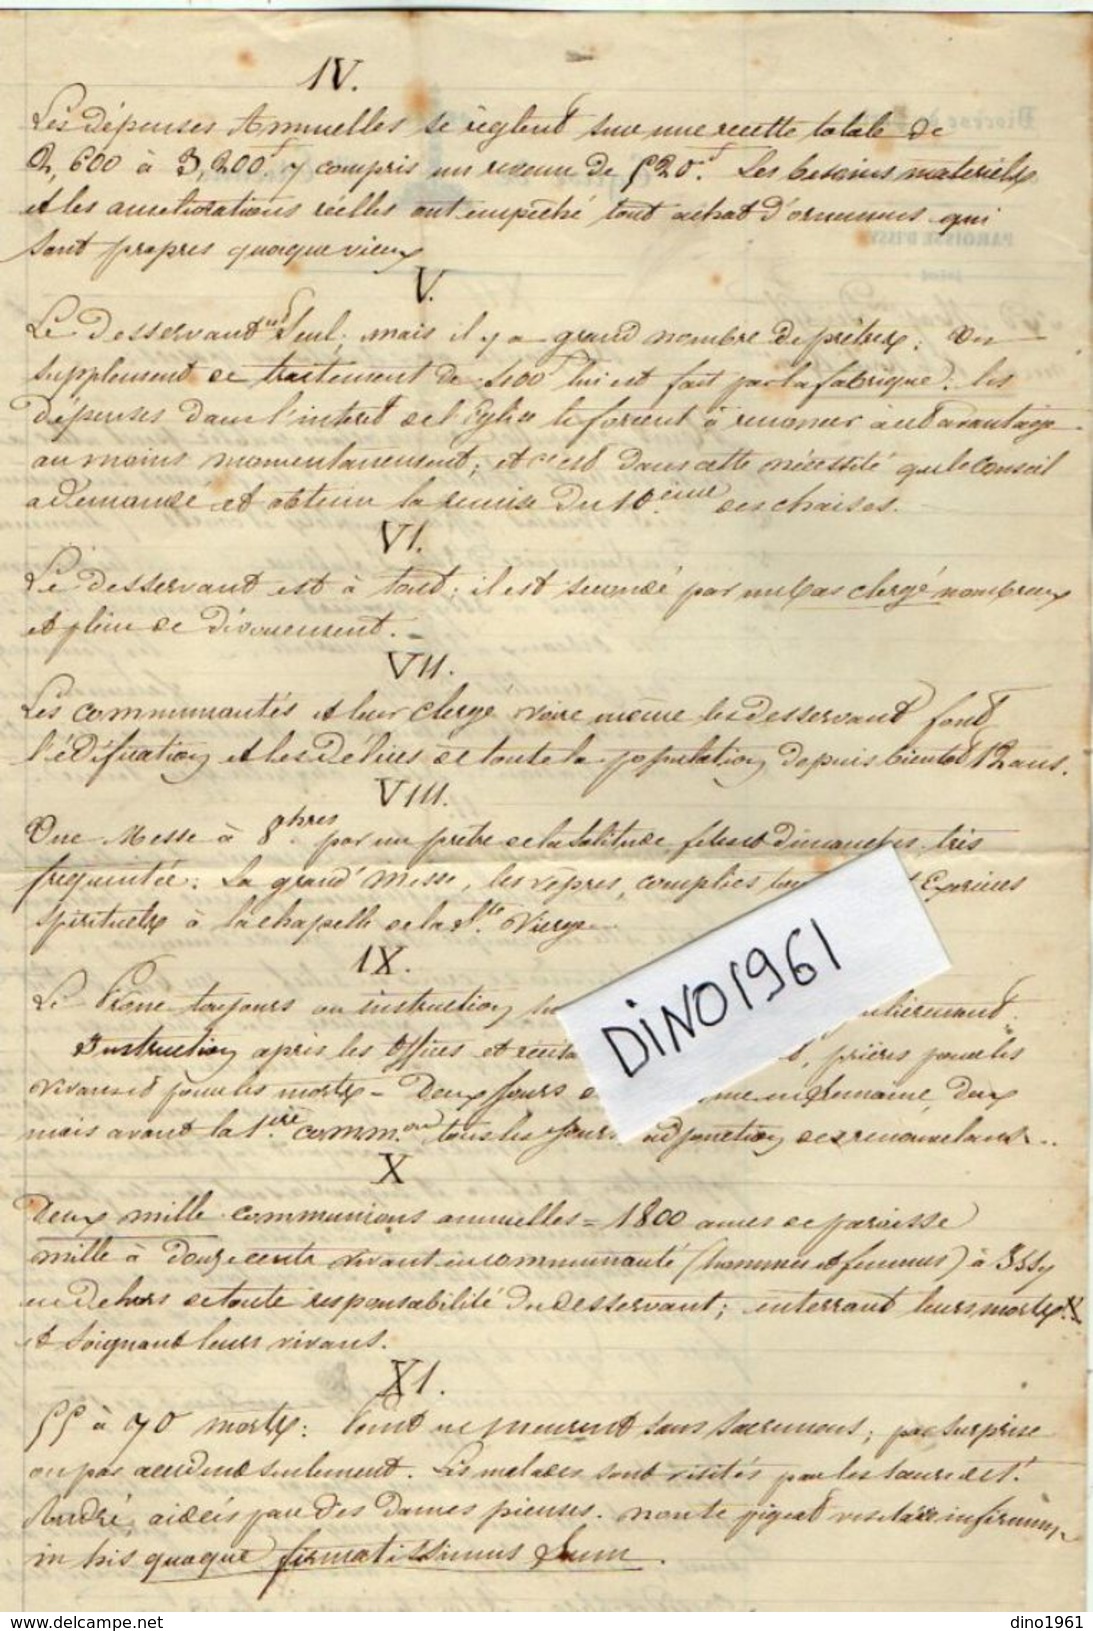 IV.
Les dépenses Annuelles se règlent sur une recette totale de
2,600 à 3,200f y compris un revenu de 520f. Les besoins matériels
et les ameliorations réelles ont empêché tout achat d'ornemens qui
sont propres quoique vieux
V.
Le Desservant est Seul; mais il y a grand nombre de prêtres: Un
supplement de traitement de 400f lui est fait par la fabrique. les
dépenses dans l'interêt de l'Eglise le forcent à renoncer à cet avantage
au moins momentanement; et c'est dans cette nécessité que le Conseil
a demandé et obtenu la remise du 10.eme des chaises.
VI.
Le desservant est à tout: il est secondé par un bas clergé nombreux
et plein de Dévouement.
VII.
Les communautés et leur clergé voire même les desservant font
l'édification et les délices de toute la population depuis bientot 12 ans.
VIII.
Une Messe à 8.hres par un prêtre de la Solitude fêtes et dimanches très
frequentée: La grand' Messe, les vêpres, complies Exercices
spirituels à la chapelle de la Ste. Vierge.
IX.
Le Prône toujours ou instruction
Instruction après les Offices et prières pour les
vivans et pour les morts = Deux jours semaine, deux
mois avant la 1.ere Comm.on tous les jours adjonction des renouvelans..
X
Deux mille communions annuelles = 1800 ames de paroisse
mille à douze cents vivant en communauté (hommes et femmes) à Issy
en dehors de toute responsabilité du desservant; enterrant leurs morts
et soignant leurs vivans.
XI.
55 à 70 morts: sans sacremens; par surprise
ou par accident seulement. Les malades sont visités par les soeurs de St.
André, aidées par des Dames pieuses. non te pigeat visitare infirmum,
in his quoque firmatissimus Sum.
DINO1961
delcampe.net
dino1961